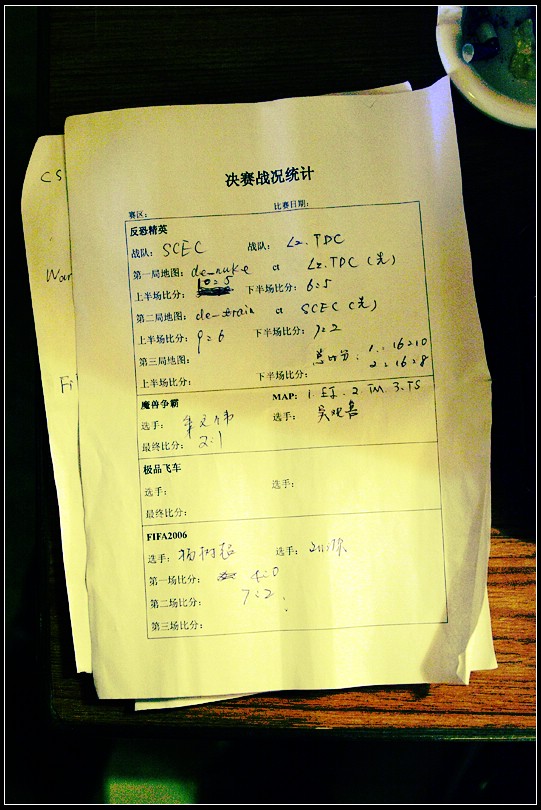 CS
War
Fi
决赛战况统计
赛区： 比赛日期：
反恐精英
战队：SCEC 战队：Lz.TDC
第一局地图：de_nuke ct Lz.TDC（先）
上半场比分：10:5 下半场比分：6:5
第二局地图：de_train ct SCEC（先）
上半场比分：9:6 下半场比分：7:2
第三局地图： 总比分：1.：16:10
上半场比分： 下半场比分： 2.：16:8
魔兽争霸 MAP：1.EI.2.TM.3.TS
选手： 选手：
最终比分：2:1
极品飞车
选手： 选手：
最终比分：
FIFA2006
选手：杨树超 选手：
第一场比分：4:0
第二场比分：7:2
第三场比分：